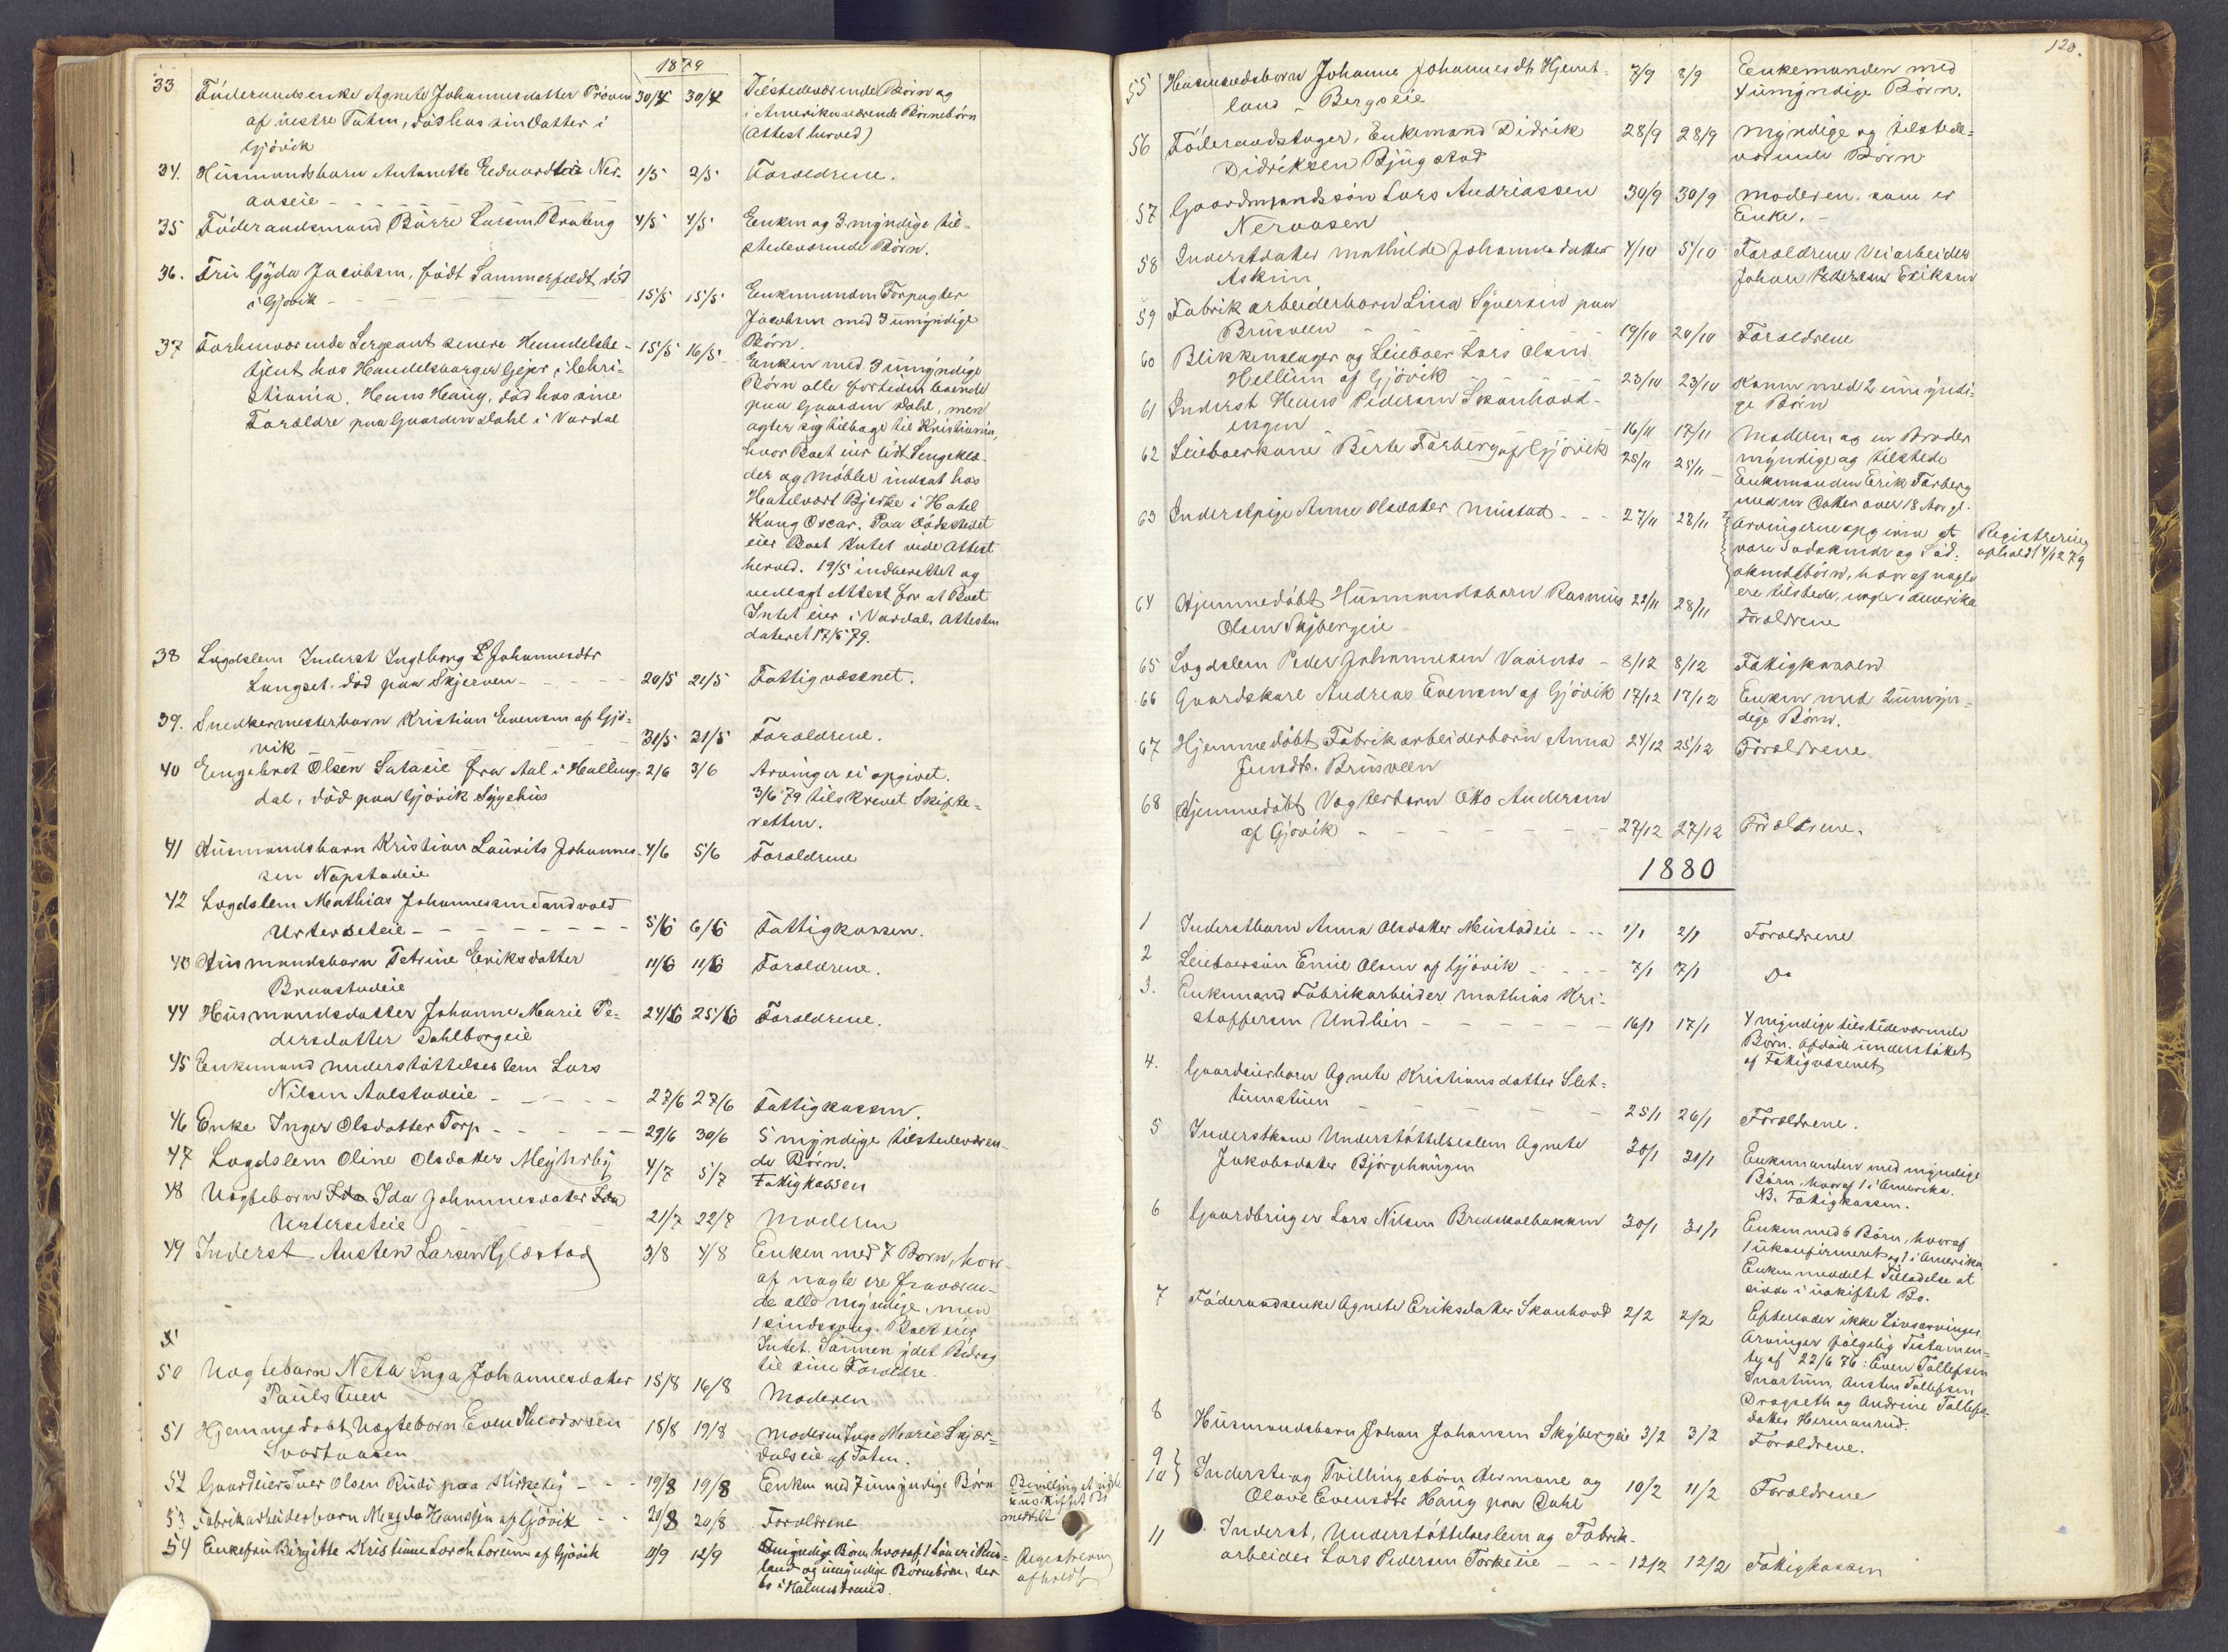 1879
33 Föderaadsenke Agnete Johannesdatter Pröven 30/4 30/4 Tilstedeværende Børn og
af vestre Toten, död hos sin datter i
i Amerika værende Börnebörn
Gjövik
(Attest herved)
34. Husmandsbarn Antonette Edvardsd. Ner- 1/5 2/5 Forældrene.
aaseie
35 Föderaadsmand Börre Larsen Brateng 4/5 4/5 Enken og 3 myndige til-
stedeværende Börn.
36. Fru Gyda Jacobsen, födt Sammerfeldt, död
i Gjövik 15/5 15/5 Enkemanden Forpagter
Jacobsen med 3 umyndige
Börn.
37 Forhenværende Sergeant senere Handelsbe- 15/5 16/5
tjent hos Handelsborger Gejer i Chri-
stiania, Hans Haug, död hos sine
Forældre paa Gaarden Dahl i Vardal
Enken med 3 umyndige
Börn alle for tiden boende
paa Gaarden Dahl, men
agter sig tilbage til Kristiania,
hvor Boet eier lidt Sengeklæ-
der og Möbler indsat hos
Hotelvært Bjerke i Hotel
Kong Oscar. Paa Dödsstedet
eier Boet Intet vide Attest
herved. 19/5 indberettet og
vedlagt Attest for at Boet
Intet eier i Vardal. Attesten
dateret 17/5 79.
38 Lægdslem Inderst Ingeborg Johannesdtr
Langset, död paa Skjerven 20/5 21/5 Fattigvæsenet.
39. Snedkermesterbarn Kristian Evensen af Gjö-
vik 31/5 31/5 Forældrene.
40 Engebret Olsen Sataeie fra Aal i Halling- 2/6 3/6 Arvinger ei opgivet.
dal, död paa Gjövik Sygehus
3/6 79 tilskrevet Skifte-
retten.
41 Husmandsbarn Kristian Laurits Johannes- 4/6 5/6 Forældrene
sen Nöpstadeie
42 Lægdslem Mathias Johannessen Sandvold
Urterseteie 5/6 6/6 Fattigkassen.
43 Husmandsbarn Petrine Eriksdatter 11/6 11/6 Forældrene.
Braastadeie
44 Husmandsdatter Johanne Marie Pe- 24/6 25/6 Forældrene.
dersdatter Dahlborgeie
45 Enkemand understöttelseslem Lars
Nilsen Aalstadeie 27/6 27/6 Fattigkassen.
46 Enke Inger Olsdatter Torp 29/6 30/6 5 myndige tilstedeværen-
de Börn.
47 Lægdslem Oline Olsdatter Meyhrby 4/7 5/7 Fattigkassen
48 Uægteborn Ida Johannesdatter
Urterseteie 21/7 22/7 Moderen
49 Inderst Austen Larsen Glæstad 3/8 4/8 Enken med 7 Born, hvor-
af nogle ere fraværen-
de alle myndige, men
1 sindssyg. Boet eier
Intet. Sönnen ydet Bidrag
til sine Forældre.
50 Uægtebarn Neta Inga Johannesdatter 15/8 16/8 Moderen
Paulstuen
51 Hjemmedöbt Uægteborn Even Theodorsen 18/8 19/8 Moderen Inge Marie Skjær-
Svartaasen
dalseie af Toten.
52 Gaardeier Iver Olsen Rudi paa Kirkeby 19/8 19/8 Enken med 7 umyndige Börn Bevilling at sidde
i uskiftet Bo
meddelt
53 Fabrikarbeiderbarn Magda Hansen af Gjövik 20/8 20/8 Forældrene
54 Enkefru Birgitte Kristiane Lorch Loreim af Gjövik 11/9 12/9 Umyndige Börn hvoraf 1 Sön er i Rus-
land og umyndige Börnebörn, der
bo i Holmestrand.
Registrering
afholdt
120.
55 Husmandsbarn Johanne Johannesdtr Hjemt- 7/9 8/9 Enkemanden med
land Bergseie
4 umyndige Börn.
56 Föderaadstager, Enkemand Didrik 28/9 28/9 Myndige og tilstede-
Didriksen Bjugstad
værende Börn
57 Gaardmandssön Lars Andriassen 30/9 30/9 Moderen som er
Neraasen
Enke.
58 Inderstdatter Mathilde Johannedatter 4/10 5/10 Forældrene Veiarbeider
Askim
Johan Pedersen Eriksen
59 Fabrikarbeiderbarn Lina Syversen paa
Brusveen 19/10 20/10 Forældrene
60 Blikkenslager og Leieboer Lars Olsen
Hellum af Gjövik 23/10 23/10 Konen med 2 umyndi-
ge Börn
61 Inderst Hans Pedersen Skonhovd-
engen 16/11 17/11 Moderen og en Broder
myndige og tilstede
62 Leieboerkone Berte Farberg af Gjövik 25/11 25/11 Enkemanden Erik Farberg
med en Datter over 18 Aar gl.
63 Inderstpige Anne Olsdatter Mustad 27/11 28/11 Arvingerne opgives at
være Sodskende og Söd-
skendebörn, hvoraf nogle
ere tilstede, nogle i Amerika
Registrering
afholdt 4/12 79
64 Hjemmedöbt Husmandsbarn Rasmus 22/11 28/11 Forældrene
Olsen Skybergeie
65 Lægdslem Peder Johannesen Vaarnes 8/12 8/12 Fattigkassen
66 Gaardskarl Andreas Evensen af Gjövik 17/12 17/12 Enken med 2 umyn-
dige Börn.
67 Hjemmedöbt Fabrikarbeiderbarn Anna 24/12 25/12 Forældrene
Jensdtr. Brusveen
68 Hjemmedöbt Vægterbarn Otto Andersen
af Gjövik 27/12 27/12 Forældrene.
1880
1 Inderstbarn Anna Olsdatter Mustadeie 1/1 2/1 Forældrene
2 Leieboersön Emil Olsen af Gjövik 7/1 7/1 Do
3. Enkemand Fabrikarbeider Mathias Kri-
stoffersen Undlien 16/1 17/1 4 myndige tilstedeværende
Börn. Afdöde understöttet
af Fattigvæsenet
4. Gaardeierbarn Agnete Kristiansdatter Slet-
tumstuen 25/1 26/1 Forældrene.
5 Inderstkone Understöttelseslem Agnete 30/1 31/1 Enkemanden med myndige
Jakobsdatter Bjørgehaugen
Börn, hvoraf 1 i Amerika.
NB. Fattigkassen.
6 Gaardbruger Lars Nilsen Bredskalbakken 30/1 31/1 Enken med 6 Börn, hvoraf
1 ukonfirmeret og 1 i Amerika
Enken meddelt Tilladelse at
sidde i uskiftet Bo.
7 Föderaadsenke Agnete Eriksdatter Skonhovd 2/2 2/2 Efterlader ikke Livsarvinger.
Arvinger fölgelig Testamen-
te af 22/6 76: Even Tollefsen
Snartum, Austen Tollefsen
Dragseth og Andrine Tollefs-
datter Hermanrud.
8 Husmandsbarn Johan Johansen Skybergeie 3/2 3/2 Forældrene.
9 10 } Inderste og Tvillingebørn Hermane og 10/2 11/2 Forældrene
Olave Evensdtr Haug paa Dahl
11 Inderst, Understöttelseslem og Fabrik-
arbeider Lars Pedersen Torkeeie 12/2 12/2 Fattigkassen